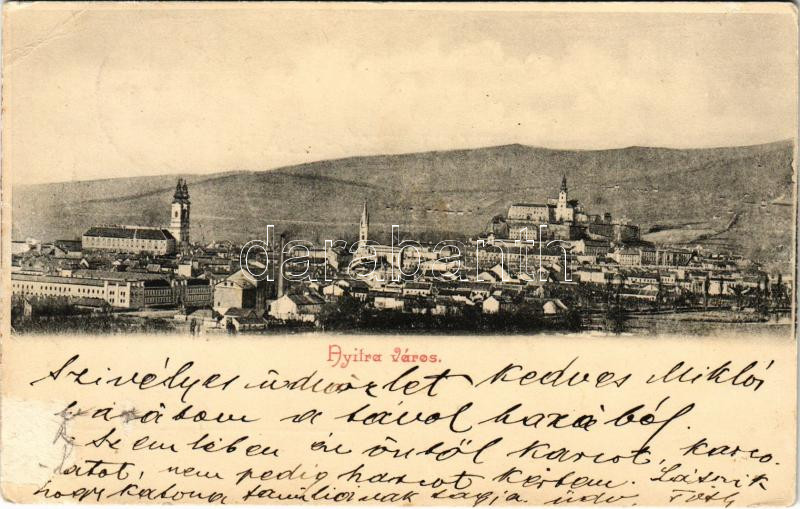 darabanth
Nyitra város.
Szivélyes üdvözlet kedves Miklós
barátom a távol hazából.
Szemlében én öntől karcot, karco-
latot, nem pedig harcot kértem. Látszik
hogy katona familiának tagja. üdv. Tóth